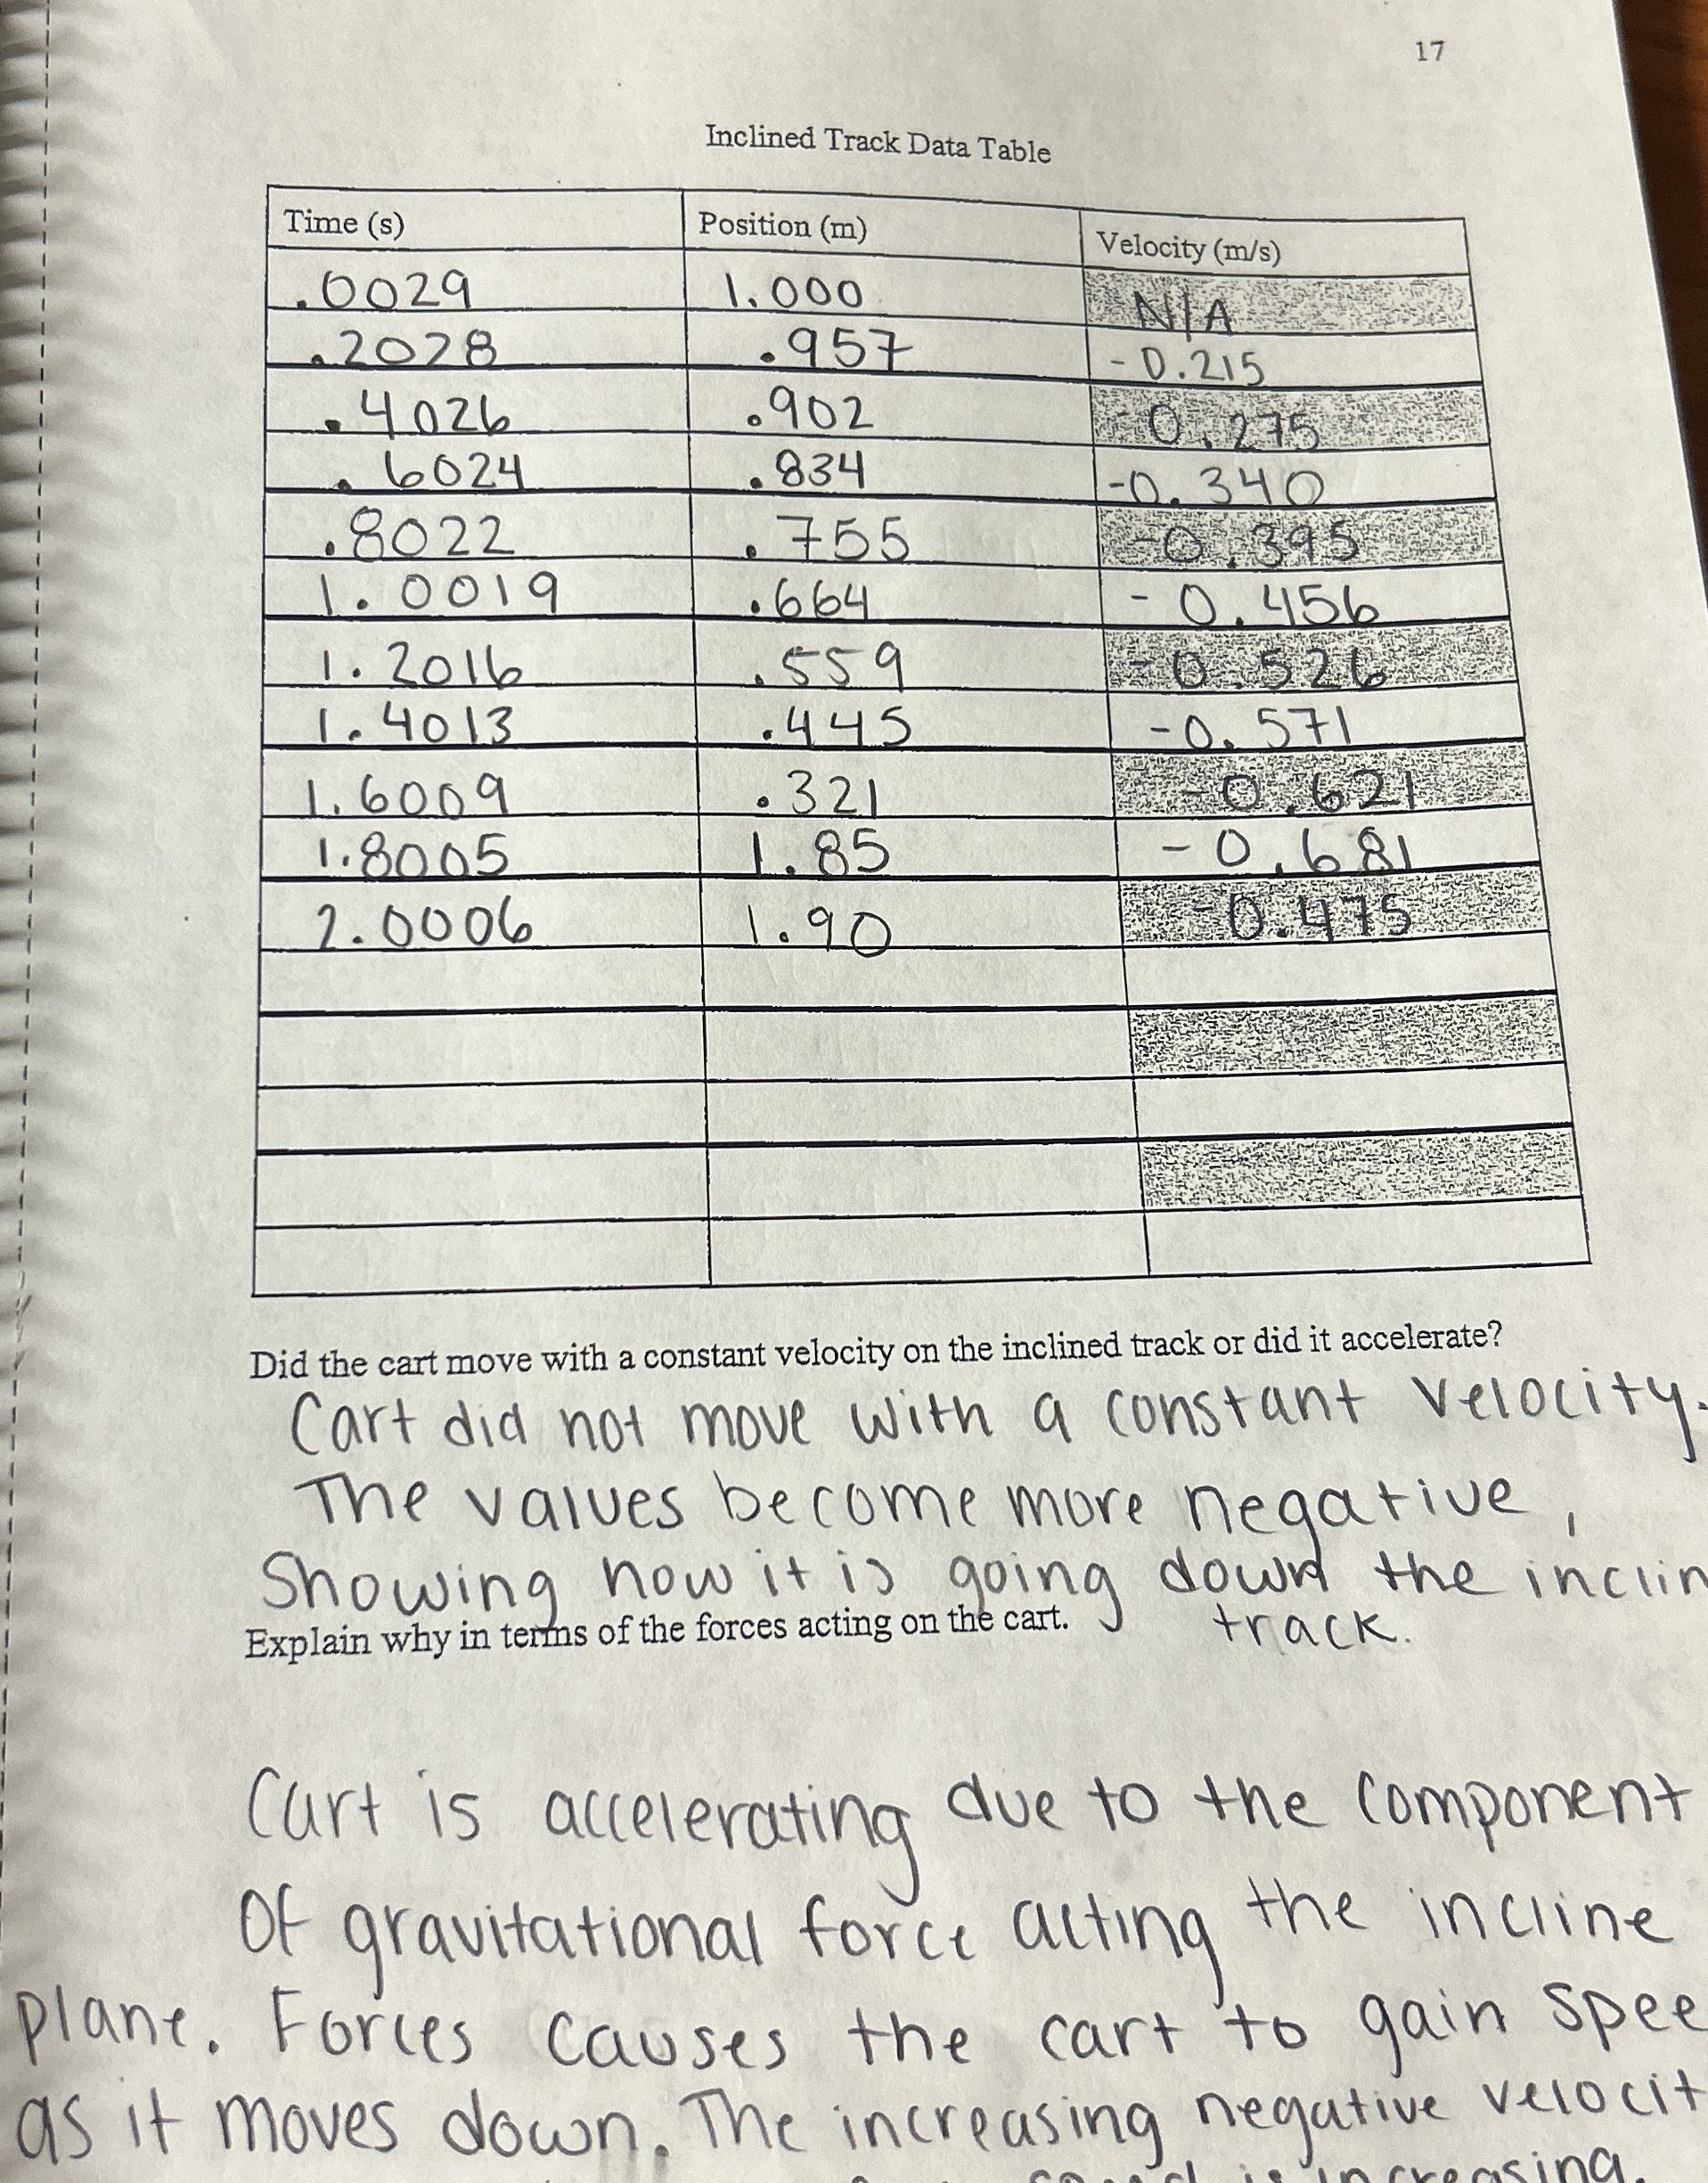 17
Inclined Track Data Table
Time (s) Position (m) Velocity (m/s)
.0029 1.000 N/A
.2028 .957 -0.215
.4026 .902 -0.275
.6024 .834 -0.340
.8022 .755 -0.395
1.0019 .664 -0.456
1.2016 .559 -0.526
1.4013 .445 -0.571
1.6009 .321 -0.621
1.8005 1.85 -0.681
2.0006 1.90 -0.475
Did the cart move with a constant velocity on the inclined track or did it accelerate?
Cart did not move with a constant velocity.
The values become more negative,
Showing how it is going down the inclin
track.
Explain why in terms of the forces acting on the cart.
Cart is accelerating due to the component
Of gravitational force acting the incline
plane. Forces causes the cart to gain spee
as it moves down. The increasing negative velocit
is increasing.